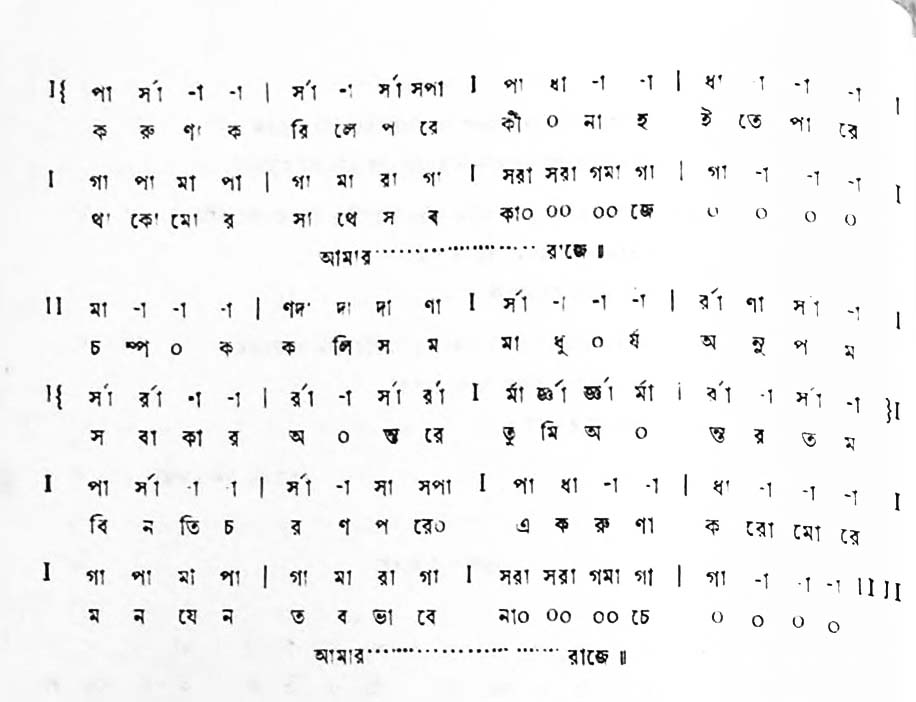 I{ পা র্সা -া -া | র্সা -া র্সা সপা I পা ধা -া -া | ধা -া -া -া I
ক রু ণা ক রি লে প রে কী ০ না হ ই তে পা রে
I গা পা মা পা | গা মা রা গা I সরা সরা গমা গা | গা -া -া -া I
থা কো মো র সা থে স ব কা০ ০০ ০০ জে ০ ০ ০ ০
আমার ........................ রাজে ॥
II মা -া -া -া | ণদা দা দা ণা I র্সা -া -া -া | র্রা ণা র্সা -া I
চ ম্প ০ ক ক লি স ম মা ধু ০ র্য অ নু প ম
I{ র্সা র্রা -া -া | র্রা -া র্সা র্রা I র্মা র্জ্ঞা র্জ্ঞা র্মা | র্রা -া র্সা -া }I
স বা কা র অ ০ ন্ত রে তু মি অ ০ ন্ত র ত ম
I পা র্সা -া -া | র্সা -া সা সপা I পা ধা -া -া | ধা -া -া -া I
বি ন তি চ র ণ প রে০ এ ক রু ণা ক রো মো রে
I গা পা মা পা | গা মা রা গা I সরা সরা গমা গা | গা -া -া -া II II
ম ন যে ন ত ব ভা বে না০ ০০ ০০ চে ০ ০ ০ ০
আমার ............................ রাজে ॥